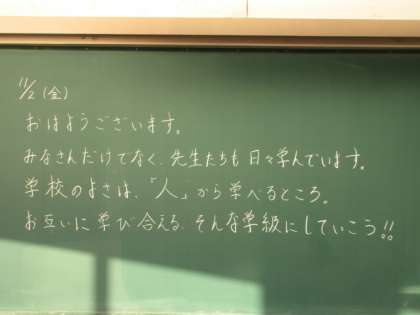 11/2(金)
おはようございます。
みなさんだけでなく、先生たちも日々学んでいます。
学校のよさは、「人」から学べるところ。
お互いに学び合える、そんな学級にしていこう!!